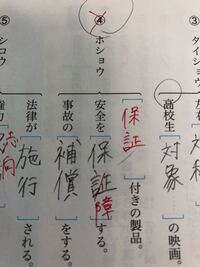 ③ タイショウ
高校生[対象]の映画。
④ ホショウ
[保証]付きの製品。
安全を[保証障]する。
事故の[補償]をする。
⑤ シコウ
法律が[施行]される。